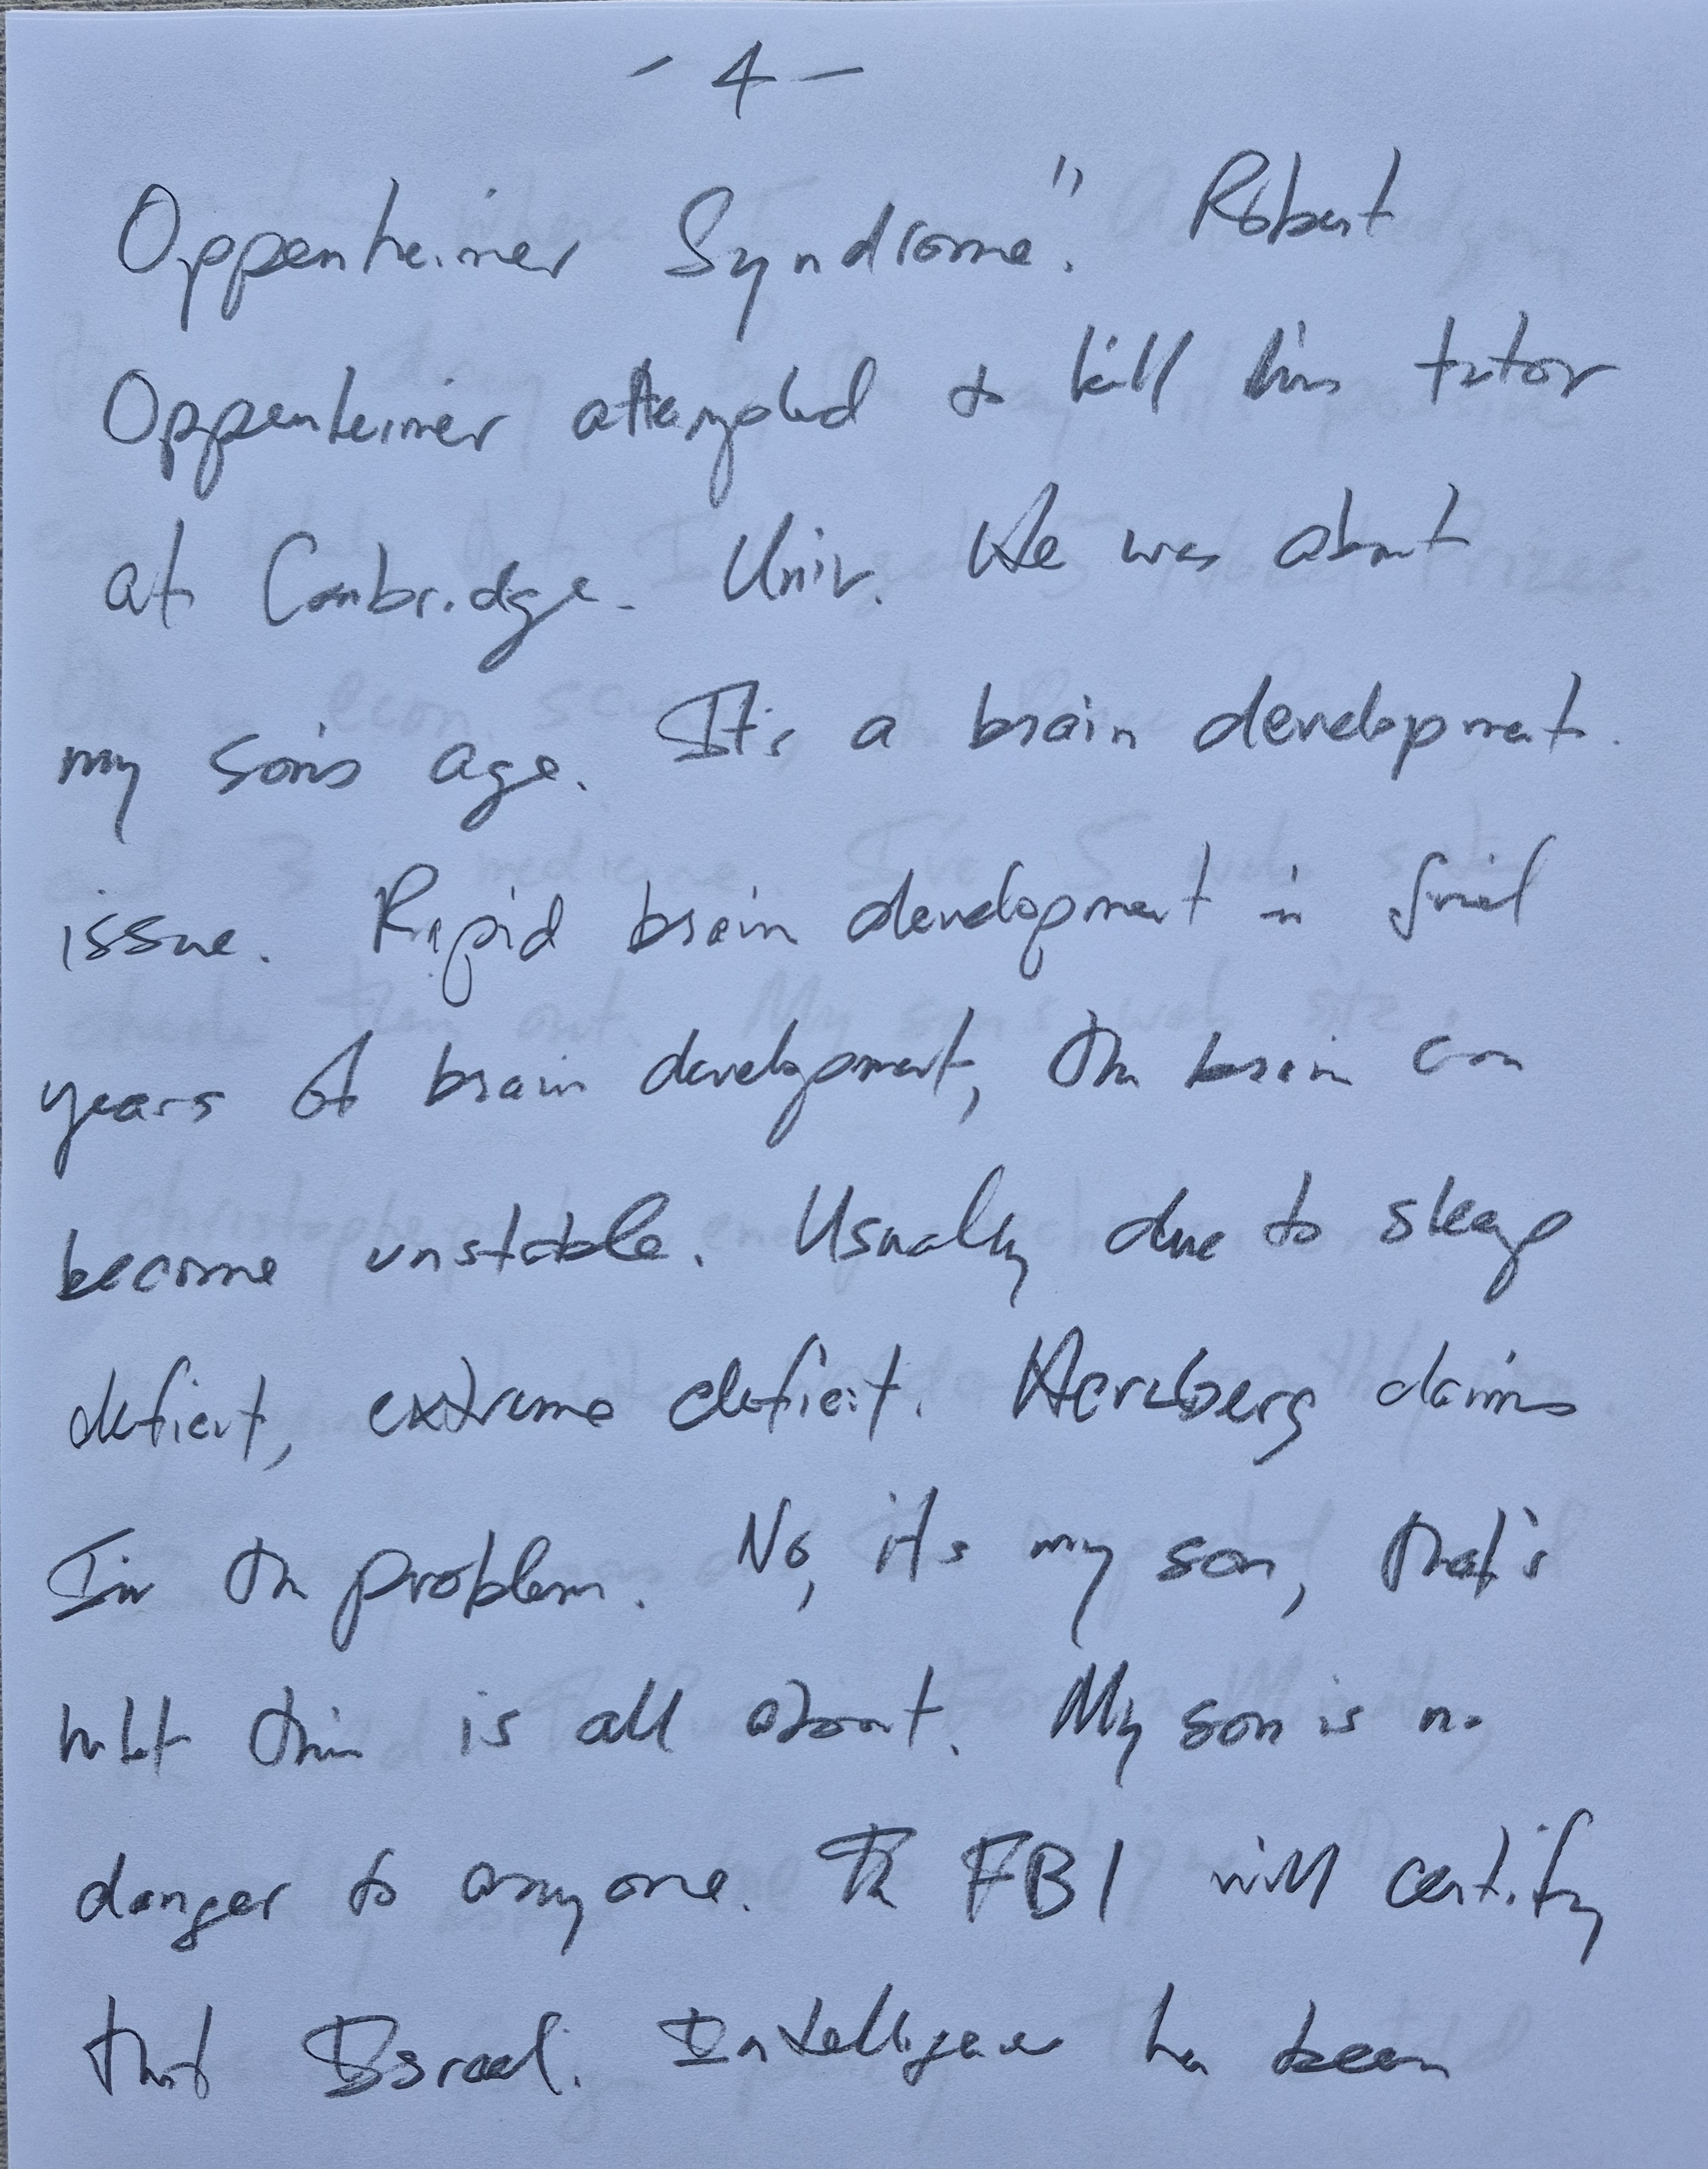 - 4 -
Oppenheimer Syndrome." Robert
Oppenheimer attempted to kill his tutor
at Cambridge. Univ. He was about
my son's age. It's a brain development.
issue. Rapid brain development in final
years of brain development, the brain can
become unstable. Usually due to sleep
deficit, extreme deficit. Herzberg claims
I'm the problem. No, it's my son, that's
what this is all about. My son is no
danger to anyone. The FBI will certify
that Israel. Intelligence has been